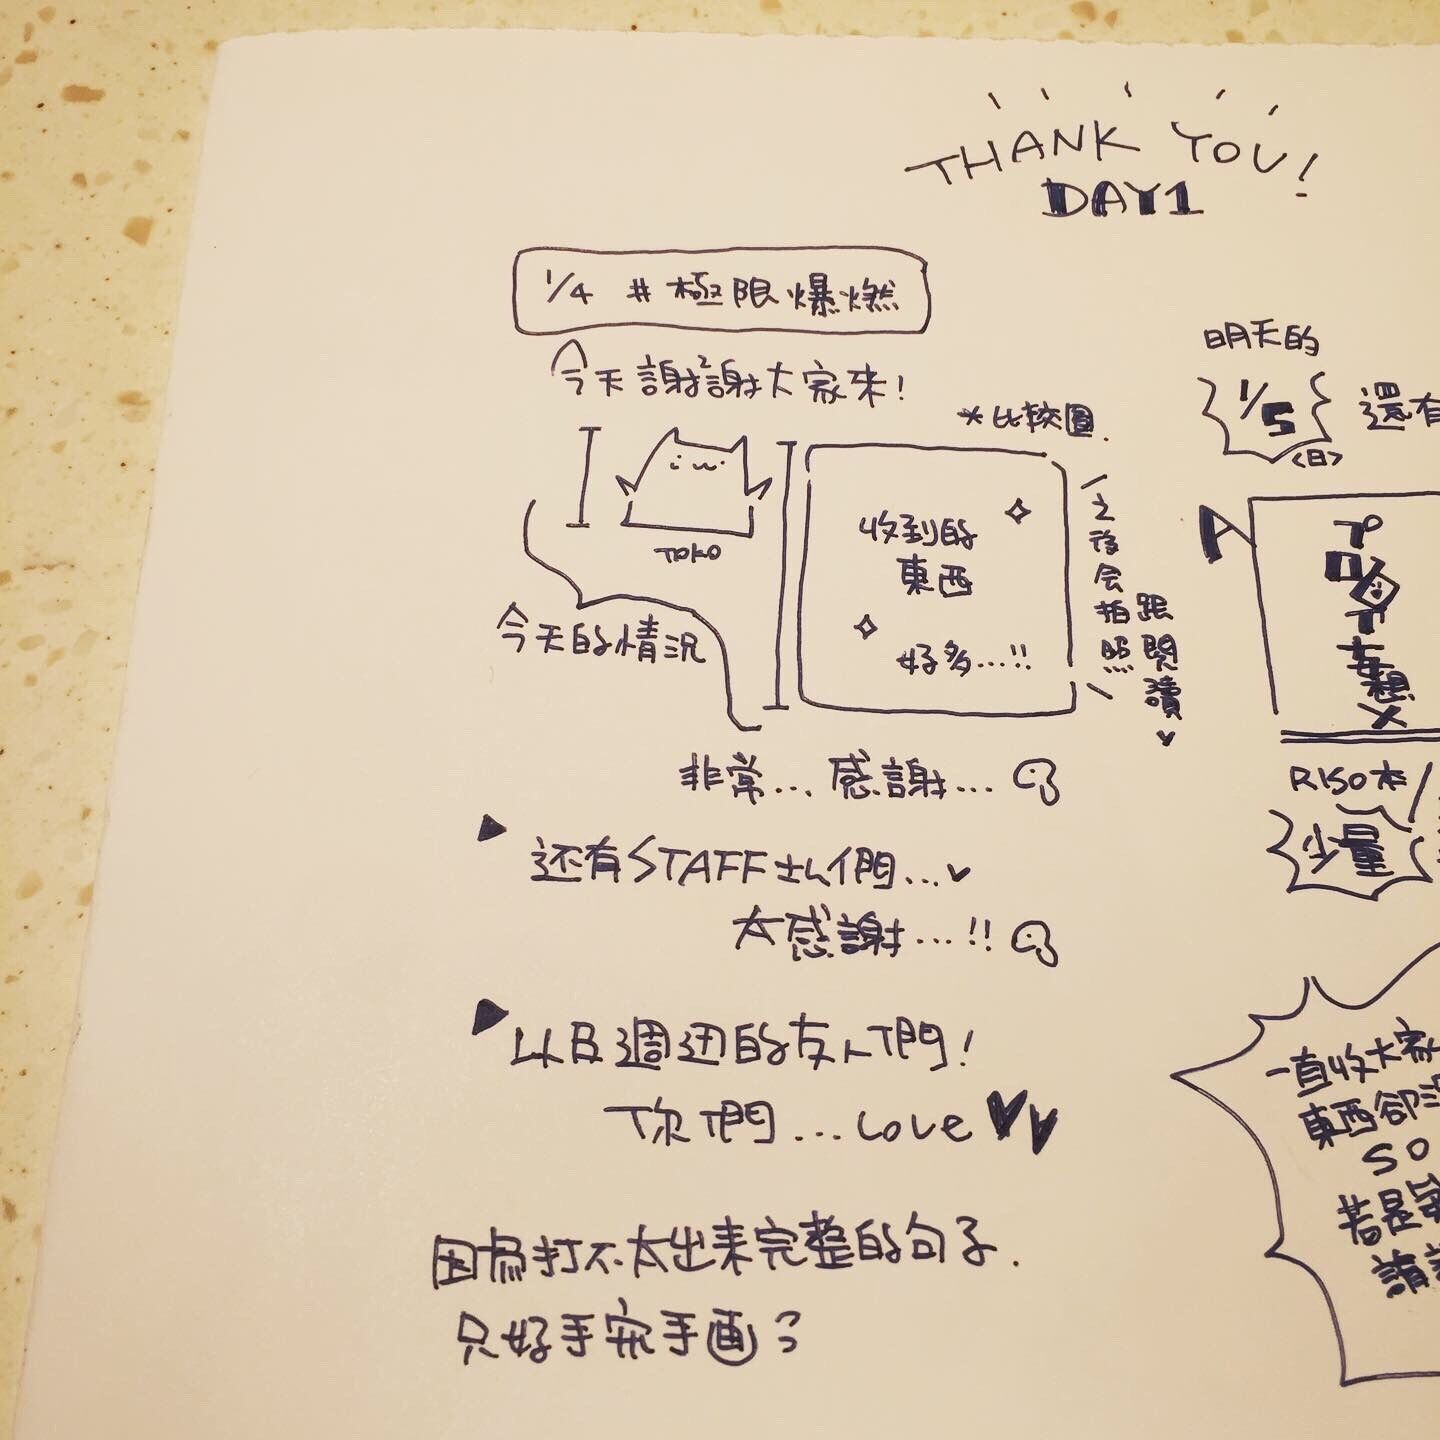 THANK YOU!
DAY1
1/4 #極限爆燃
今天謝謝大家來!
*比較圖.
TOKO
收到的
東西
好多...!!
之後会拍照
跟閱讀♥
今天的情況
非常...感謝...
还有STAFF士们...♥
大感謝...!!
以及週边的友人們!
你們...Love♥♥
因為打不太出来完整的句子.
只好手写手画了
明天的
1/5
<日>
還有
A
プロメア妄想
RISO本/
少量
一直收大家
東西卻沒
SO
若是
請